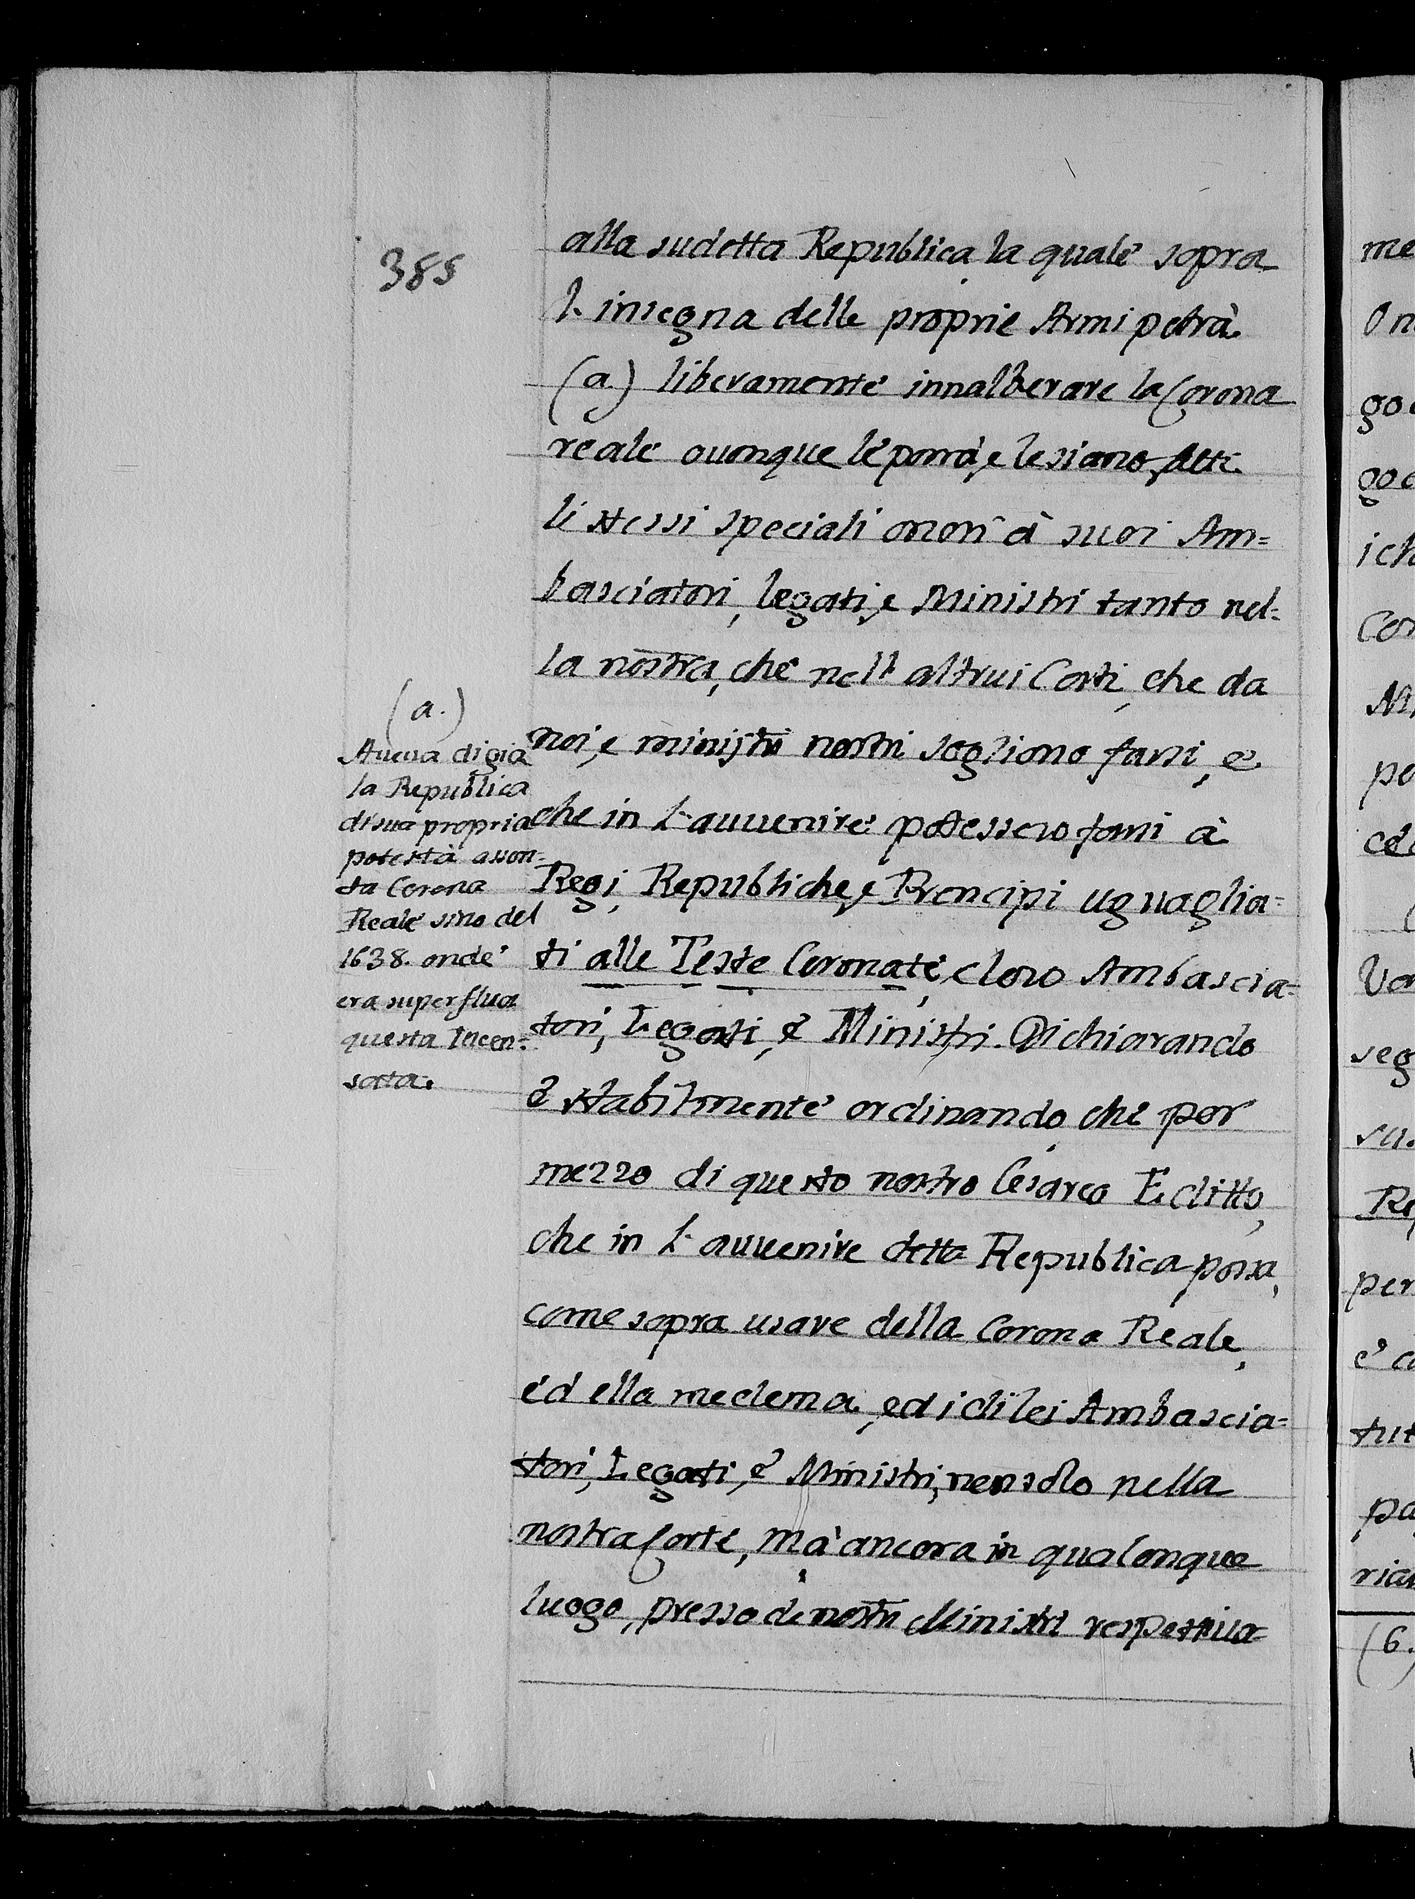 385
alla sudetta Republica, la quale sopra
l'insegna delle proprie Armi potrà
(a) liberamente innalberare la Corona
reale ouonque le porrà, e le siano fatti
li stessi speciali onori à suoi Am=
basciatori, legati, e Ministri tanto nel=
la nostra, che nell' altrui Corti, che da
noi, e ministri nostri sogliono farsi, e
che in l'auuenire potessero farsi à
Regi, Republiche, e Prencipi uguaglia=
ti alle Teste Coronate, e loro Ambascia=
tori, Legati, e Ministri. Dichiarando
e stabilmente ordinando, che per
mezzo di questo nostro Cesareo Editto,
che in l'auuenire detta Republica possa,
come sopra usare della Corona Reale,
ed ella medema, ed i di lei Ambascia=
tori, Legati, e Ministri, non solo nella
nostra Corte, mà ancora in qualonque
luogo, presso de nostri Ministri respettiua=
(a.)
Aueua di già
la Republica
di sua propria
potestà asson=
ta Corona
Reale sino del
1638. onde
era superflua
questa Incen=
sata.